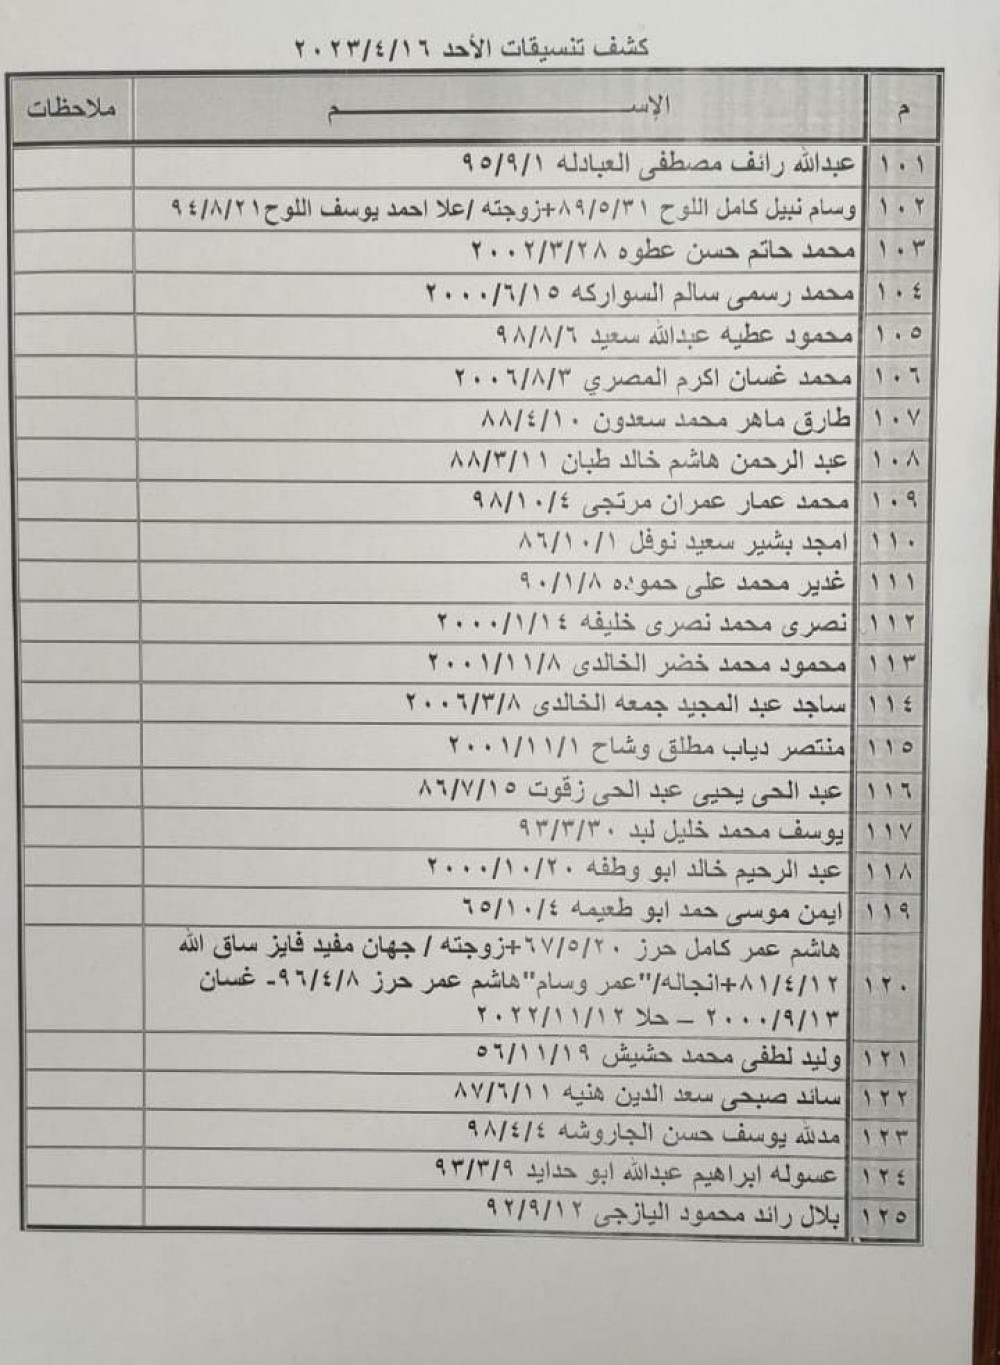 كشف تنسيقات الأحد ٢٠٢٣/٤/١٦
م الإســـــــــــــــــــــم ملاحظات
١٠١ عبدالله رائف مصطفى العبادله ٩٥/٩/١
١٠٢ وسام نبيل كامل اللوح ٨٩/٥/٣١+زوجته /علا احمد يوسف اللوح٩٤/٨/٢١
١٠٣ محمد حاتم حسن عطوه ٢٠٠٢/٣/٢٨
١٠٤ محمد رسمى سالم السواركه ٢٠٠٠/٦/١٥
١٠٥ محمود عطيه عبدالله سعيد ٩٨/٨/٦
١٠٦ محمد غسان اكرم المصري ٢٠٠٦/٨/٣
١٠٧ طارق ماهر محمد سعدون ٨٨/٤/١٠
١٠٨ عبد الرحمن هاشم خالد طبان ٨٨/٣/١١
١٠٩ محمد عمار عمران مرتجى ٩٨/١٠/٤
١١٠ امجد بشير سعيد نوفل ٨٦/١٠/١
١١١ غدير محمد على حموده ٩٠/١/٨
١١٢ نصرى محمد نصرى خليفه ٢٠٠٠/١/١٤
١١٣ محمود محمد خضر الخالدى ٢٠٠١/١١/٨
١١٤ ساجد عبد المجيد جمعه الخالدى ٢٠٠٦/٣/٨
١١٥ منتصر دياب مطلق وشاح ٢٠٠١/١١/١
١١٦ عبد الحى يحيى عبد الحى زقوت ٨٦/٧/١٥
١١٧ يوسف محمد خليل لبد ٩٣/٣/٣٠
١١٨ عبد الرحيم خالد ابو وطفه ٢٠٠٠/١٠/٢٠
١١٩ ايمن موسى حمد ابو طعيمه ٦٥/١٠/٤
١٢٠ هاشم عمر كامل حرز ٦٧/٥/٢٠+زوجته / جهان مفيد فايز ساق الله
٨١/٤/١٢+انجاله/"عمر وسام"هاشم عمر حرز ٩٦/٤/٨- غسان
٢٠٠٠/٩/١٣ – حلا ٢٠٢٢/١١/١٢
١٢١ وليد لطفى محمد حشيش ٥٦/١١/١٩
١٢٢ سائد صبحى سعد الدين هنيه ٨٧/٦/١١
١٢٣ مدلله يوسف حسن الجاروشه ٩٨/٤/٤
١٢٤ عسوله ابراهيم عبدالله ابو حدايد ٩٣/٣/٩
١٢٥ بلال رائد محمود اليازجى ٩٢/٩/١٢